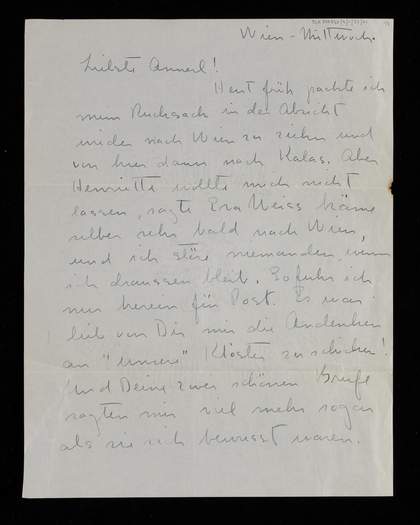 Wien - Mittwoch.
Liebste Annerl!
Heut früh packte ich
mein Rucksack in der Absicht
wieder nach Wien zu ziehn und
von hier dann nach Kalas. Aber
Henriette wollte mich nicht
lassen, sagte Eva Weiss käme
selber sehr bald nach Wien,
und ich störe niemanden, wenn
ich draussen bleib. So fuhr ich
nur herein für Post. Es war
lieb von Dir mir die Andenken
an "unsere" Klöster zu schicken!
Und Deine zwei schönen Briefe
sagten mir viel mehr sogar
als sie sich bewusst waren.